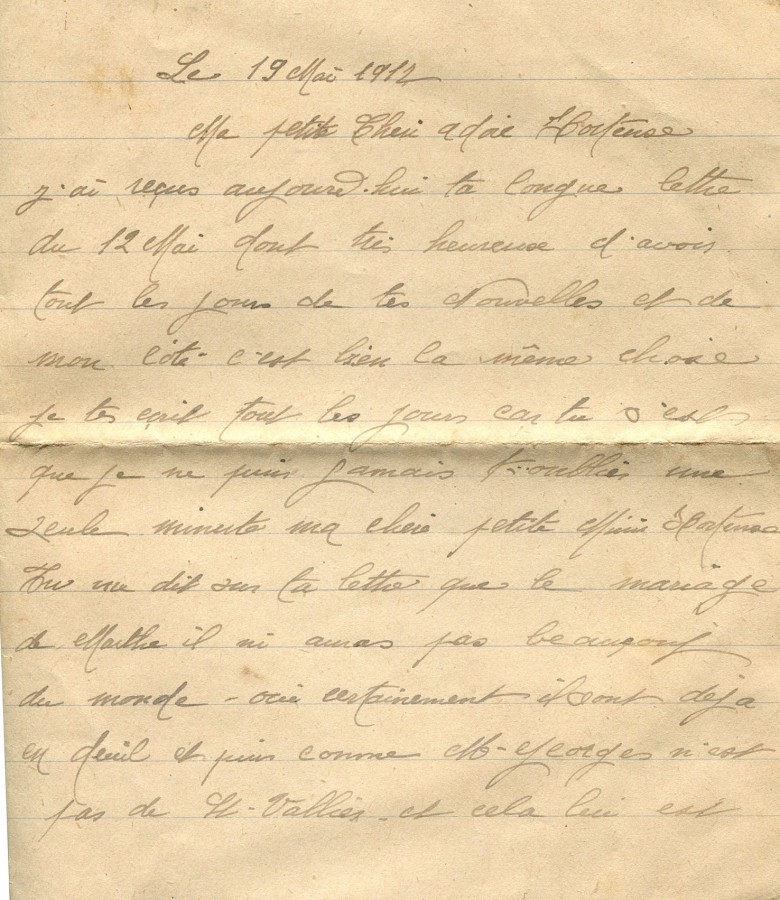 Le 19 Mai 1917
Ma petite Cheri adoré Hortense
j'ai reçus aujourd-hui ta longue lettre
du 12 Mai dont très heureuse d'avoir
tout les jours de tes Nouvelles et de
mon côté c-est bien la même chose
je tes ecrit tout les jours car tu s'est
que je ne puis jamais t-oublier une
seule minute ma cheri petite Mimi Hortense
Tu me dit sur ta lettre que le mariage
de Marthe il ni auras pas beaucouf
du monde - oui certainement il sont deja
en deuil et puis comme M-Georges n'est
pas de St-Vallier - et cela lui est